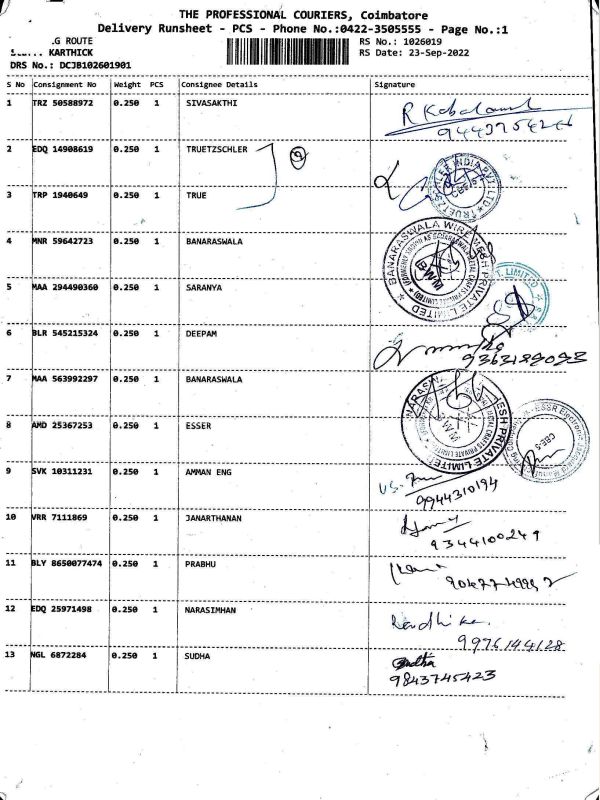 THE PROFESSIONAL COURIERS, Coimbatore
Delivery Runsheet - PCS - Phone No.:0422-3505555 - Page No.:1
G ROUTE
RS No.: 1026019
KARTHICK
RS Date: 23-Sep-2022
DRS No.: DCJB102601901
S No Consignment No Weight PCS Consignee Details Signature
1 TRZ 50588972 0.250 1 SIVASAKTHI
2 EDQ 14908619 0.250 1 TRUETZSCHLER
3 TRP 1940649 0.250 1 TRUE
4 MNR 59642723 0.250 1 BANARASWALA
BANARASWALA WIRE MESH PRIVATE LIMITED
BWM
5 MAA 294490360 0.250 1 SARANYA
T. LIMITED
6 BLR 545215324 0.250 1 DEEPAM
7 MAA 563992297 0.250 1 BANARASWALA
8 AMD 25367253 0.250 1 ESSER
CBE-5
9 SVK 10311231 0.250 1 AMMAN ENG
9944310194
10 VRR 7111869 0.250 1 JANARTHANAN
9344100249
11 BLY 8650077474 0.250 1 PRABHU
12 EDQ 25971498 0.250 1 NARASIMHAN
Radhika.
9976144128
13 NGL 6872284 0.250 1 SUDHA
Sudha
9843745423